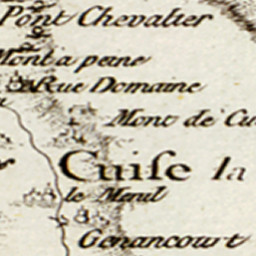 Pont Chevalier
Mont a peine
Rue Domaine
Mont de Cu
Cuiſe la
le Menil
Genancourt